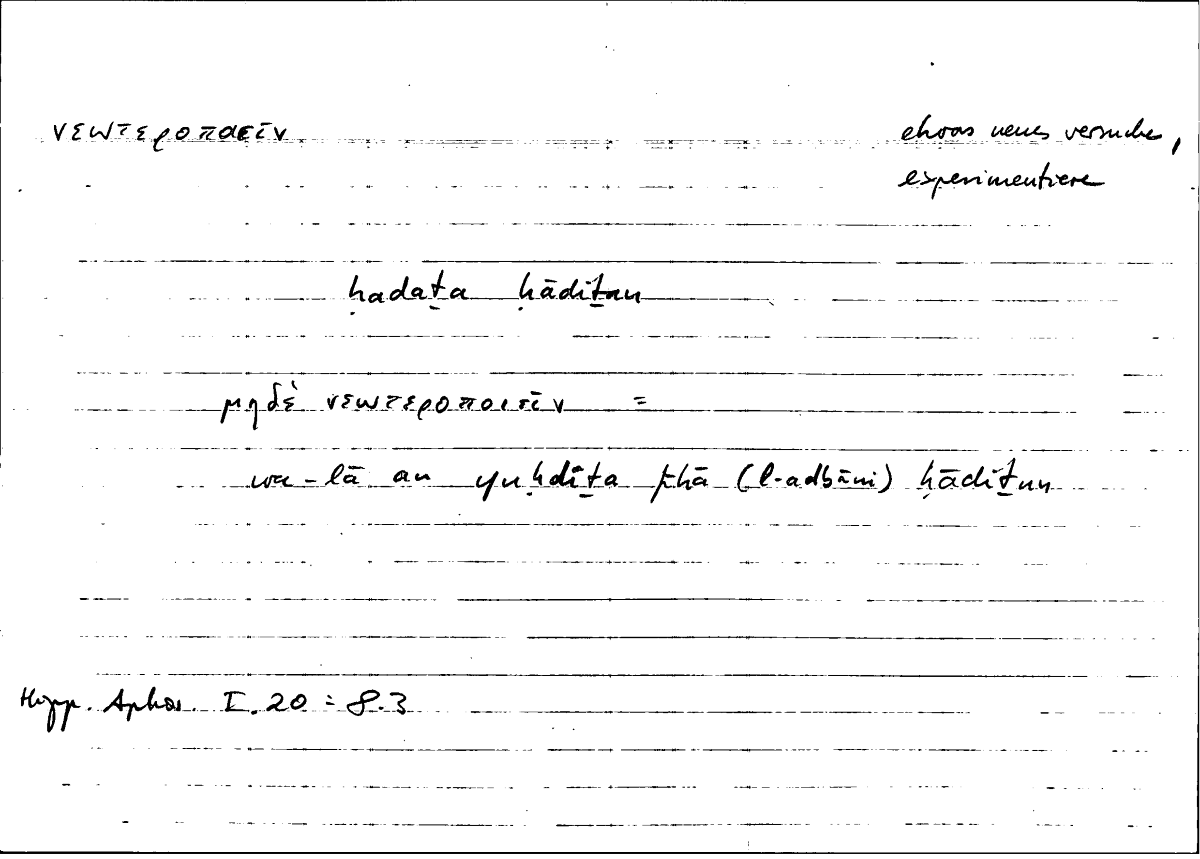 νεωτεροποιεῖν etwas neues versuche,
experimentiere
ḥadaṯa ḥādiṯun
μηδὲ νεωτεροποιεῖν =
wa-lā an yuḥdiṯa fīhā (l-adbāni) ḥādiṯun
Hipp. Aphor. I. 20 = 8.3